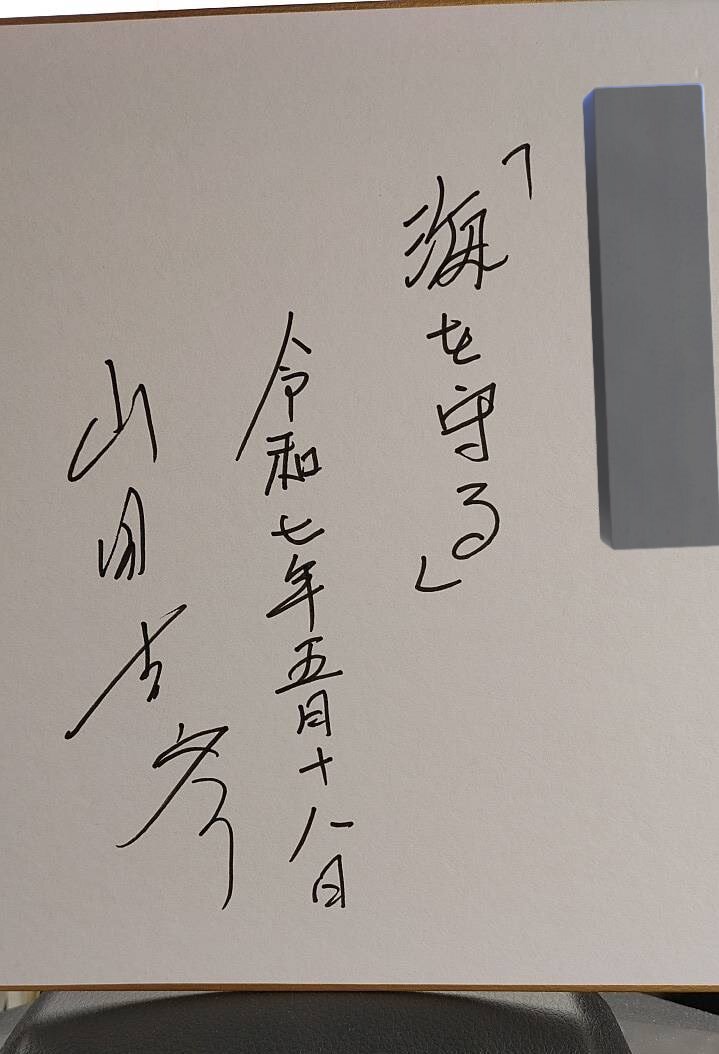 「海を守る」
令和七年五月十八日
山田吉彦